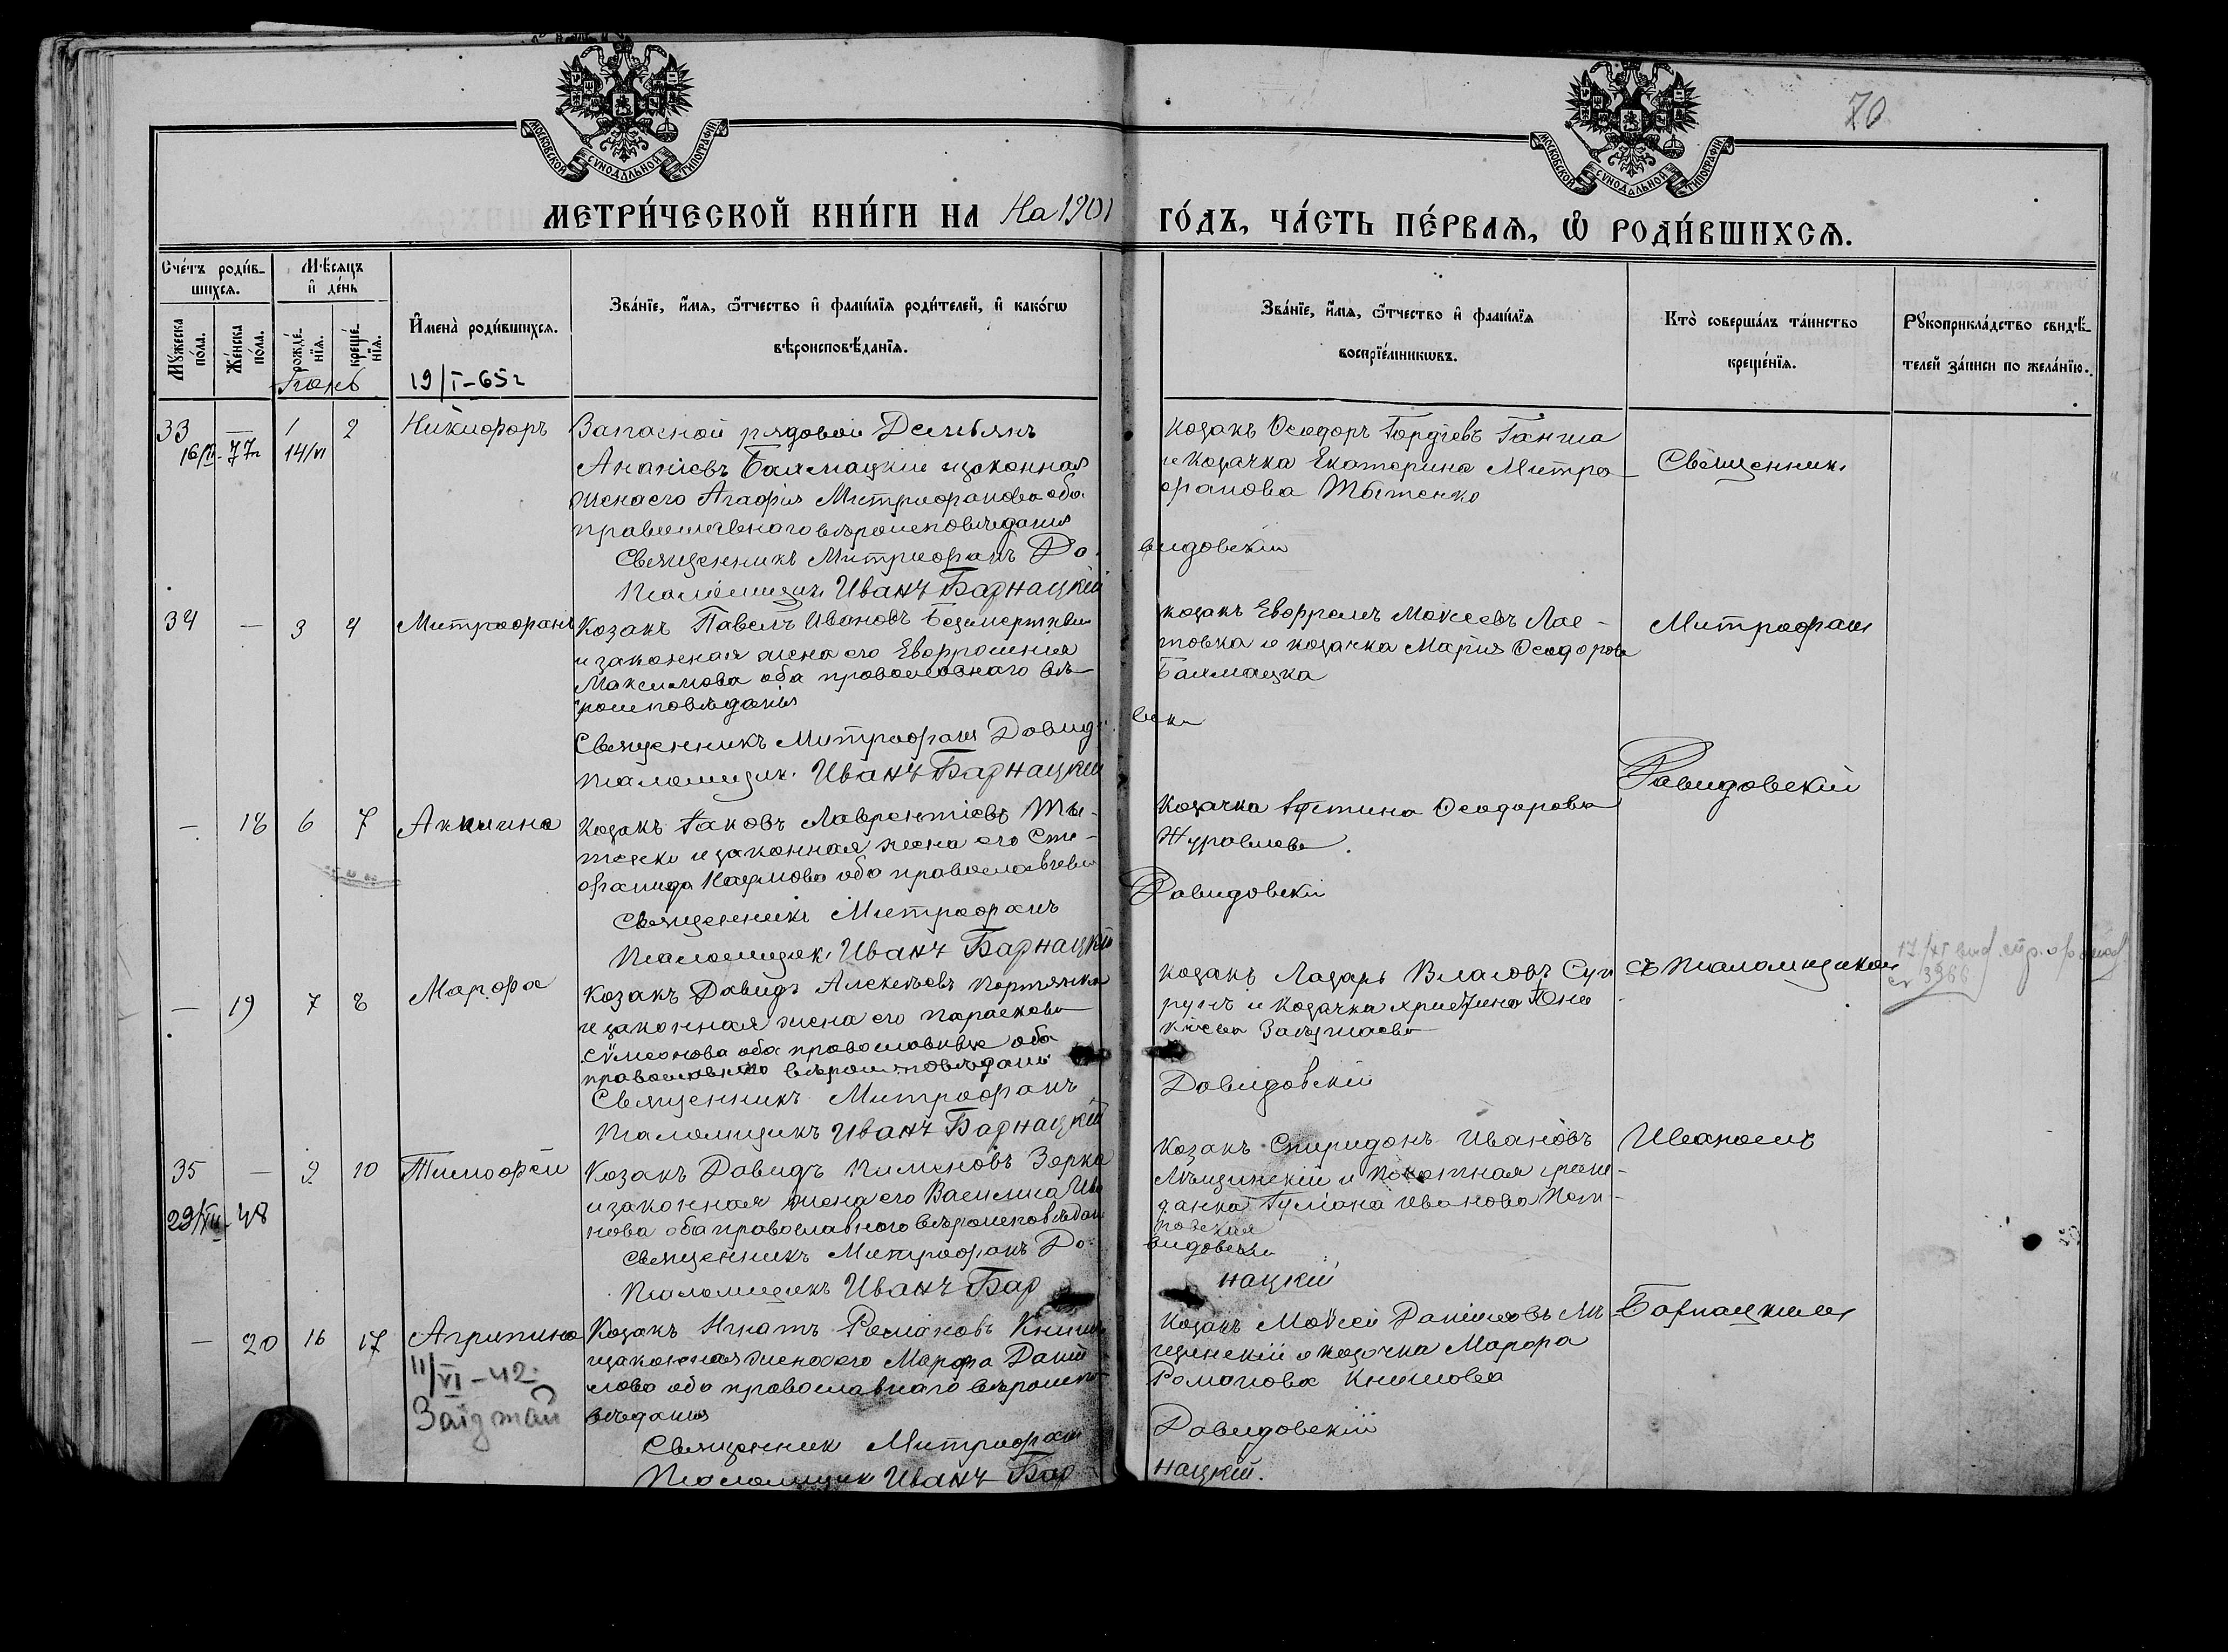 70
МОСКОВСКОЙ СѴНОДАЛЬНОЙ ТИПОГРАФІИ
МОСКОВСКОЙ СѴНОДАЛЬНОЙ ТИПОГРАФІИ
МЕТРИ́ЧЕСКОЙ КНИ́ГИ НА На 1901 ГО́ДЪ, ЧА́СТЬ ПЕ́РВАЯ, Ѡ РОДИ́ВШИХСЯ.
Сче́тъ роди́в-
шихся.
Мꙋжеска по́ла.
Же́нска по́ла.
Мѣсяцъ и де́нь
рожде́-
нія.
креще́-
нія.
Имена̀ роди́вшихся.
Зва́ніе, и́мя, ѻ́тчество и фами́лія роди́телей, и како́гѡ
вѣроисповѣ́данія.
Зва́ніе, и́мя, ѻ́тчество и фами́лія
воспріе́мникѡвъ.
Кто̀ соверша́лъ та́инство
креще́нія.
Рꙋкоприкла́дство свидѣ́-
телей за́писи по жела́нію.
Іюнь
19/I-65г
33 — 1 2 Никифоръ
77г 14/VI
Запасной рядовой Демьянъ
Ананіевъ Бахмацкій и законная
жена его Агафія Митрофанова оба
православнаго вѣроисповѣданія
Священникъ Митрофанъ Да-
видовскій
Псаломщикъ Иванъ Барнацкій
Козакъ Ѳеодоръ Гордіевъ Ганжа
и козачка Екатерина Митро-
фанова Тытенко
Священник
34 — 3 4 Митрофанъ
Козакъ Павелъ Ивановъ Безсмертный
и законная жена его Евфросинія
Максимова оба православнаго вѣ-
роисповѣданія
Священникъ Митрофанъ Давидо
вски
Псаломщик Иванъ Барнацкій
козакъ Евфремъ Моисеевъ Лас-
товка и козачка Марія Ѳеодорова
Бахмацка
Митрофан
Давидовскій
— 18 6 7 Акилина
Козакъ Іаковъ Лаврентіевъ Ты-
тенко и законная жена его Сте-
фанида Наумова оба православные
Священникъ Митрофанъ
Давидовскій
Псаломщик Иванъ Барнацкій
Козачка Іустина Ѳеодорова
Журавлева.
— 19 7 8 Марфа
Козакъ Давидъ Алексѣевъ Портянка
и законная жена его Параскева
Сѵмеонова оба православные оба
православнаго вѣроисповѣдані
Священникъ Митрофанъ
Давидовскій
Псаломщикъ Иванъ Барнацкій
козакъ Лазарь Власовъ Суп
рунъ и козачка христина
съ псаломщиком
17/XI
3966
35 — 9 10 Тимофей
29/XII-48
Козакъ Давидъ Пименовъ Зорка
и законная жена его Василиса Ива
нова оба православного вѣроисповѣдан
Священникъ Митрофанъ Да-
видовски
Псаломщикъ Иванъ Бар
нацкій
Козакъ Спиридонъ Ивановъ
Лѣщинскій и почетная граж-
данка Іуліана Иванова
Иваномъ
— 20 16 17 Агрипина
11/VI-42
Козакъ Игнатъ Романовъ
и законная жена его Марфа Дани
лова оба православнаго вѣроиспо-
вѣданія
Священник Митрофан
Давидовскій
Псаломщик Иванъ Бар
нацкій.
Козакъ Моѵсей Даниловъ Лѣ
щинскій и козачка Марфа
Романова
Барнацкимъ